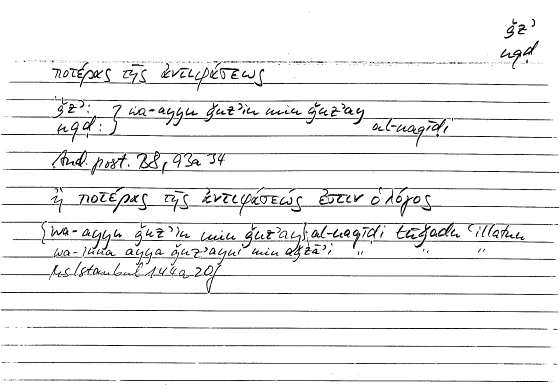 ǧzʾ
nqḍ
ποτέρας τῆς ἀντιφάσεως
ǧzʾ: } wa-ayyu ǧuzʾin min ǧuzʾay
nqḍ: } al-naqīḍi
An. post. B8, 93a34
ἢ ποτέρας τῆς ἀντιφάσεώς ἐστιν ὁ λόγος
{wa-ayyu ǧuzʾin min ǧuzʾay} al-naqīḍi tūǧadu ʿillatun
wa-inna ayya ǧuzʾayni min aǧzāʾi " " "
Ms Istanbul 144a20f